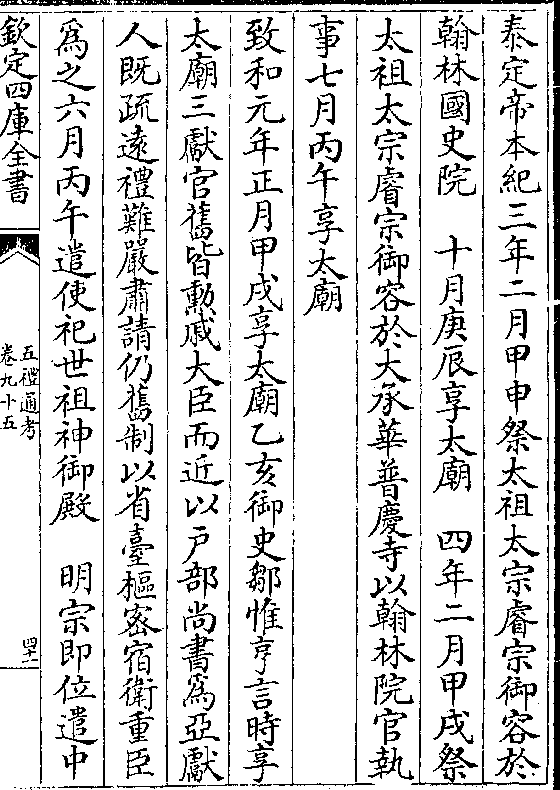 泰定帝本紀三年二月甲申祭太祖太宗睿宗御容於
翰林國史院　十月庚辰享太廟　四年二月甲戌祭
太祖太宗睿宗御容於大承華普慶寺以翰林院官執
事七月丙午享太廟
致和元年正月甲戌享太廟乙亥御史鄒惟亨言時享
太廟三獻官舊皆勲戚大臣而近以戶部尚書爲亞獻
人既疏遠禮難嚴肅請仍舊制以省臺樞密宿衛重臣
爲之六月丙午遣使祀世祖神御殿　明宗即位遣中
欽定四庫全書
五禮通考
卷九十五
四十一